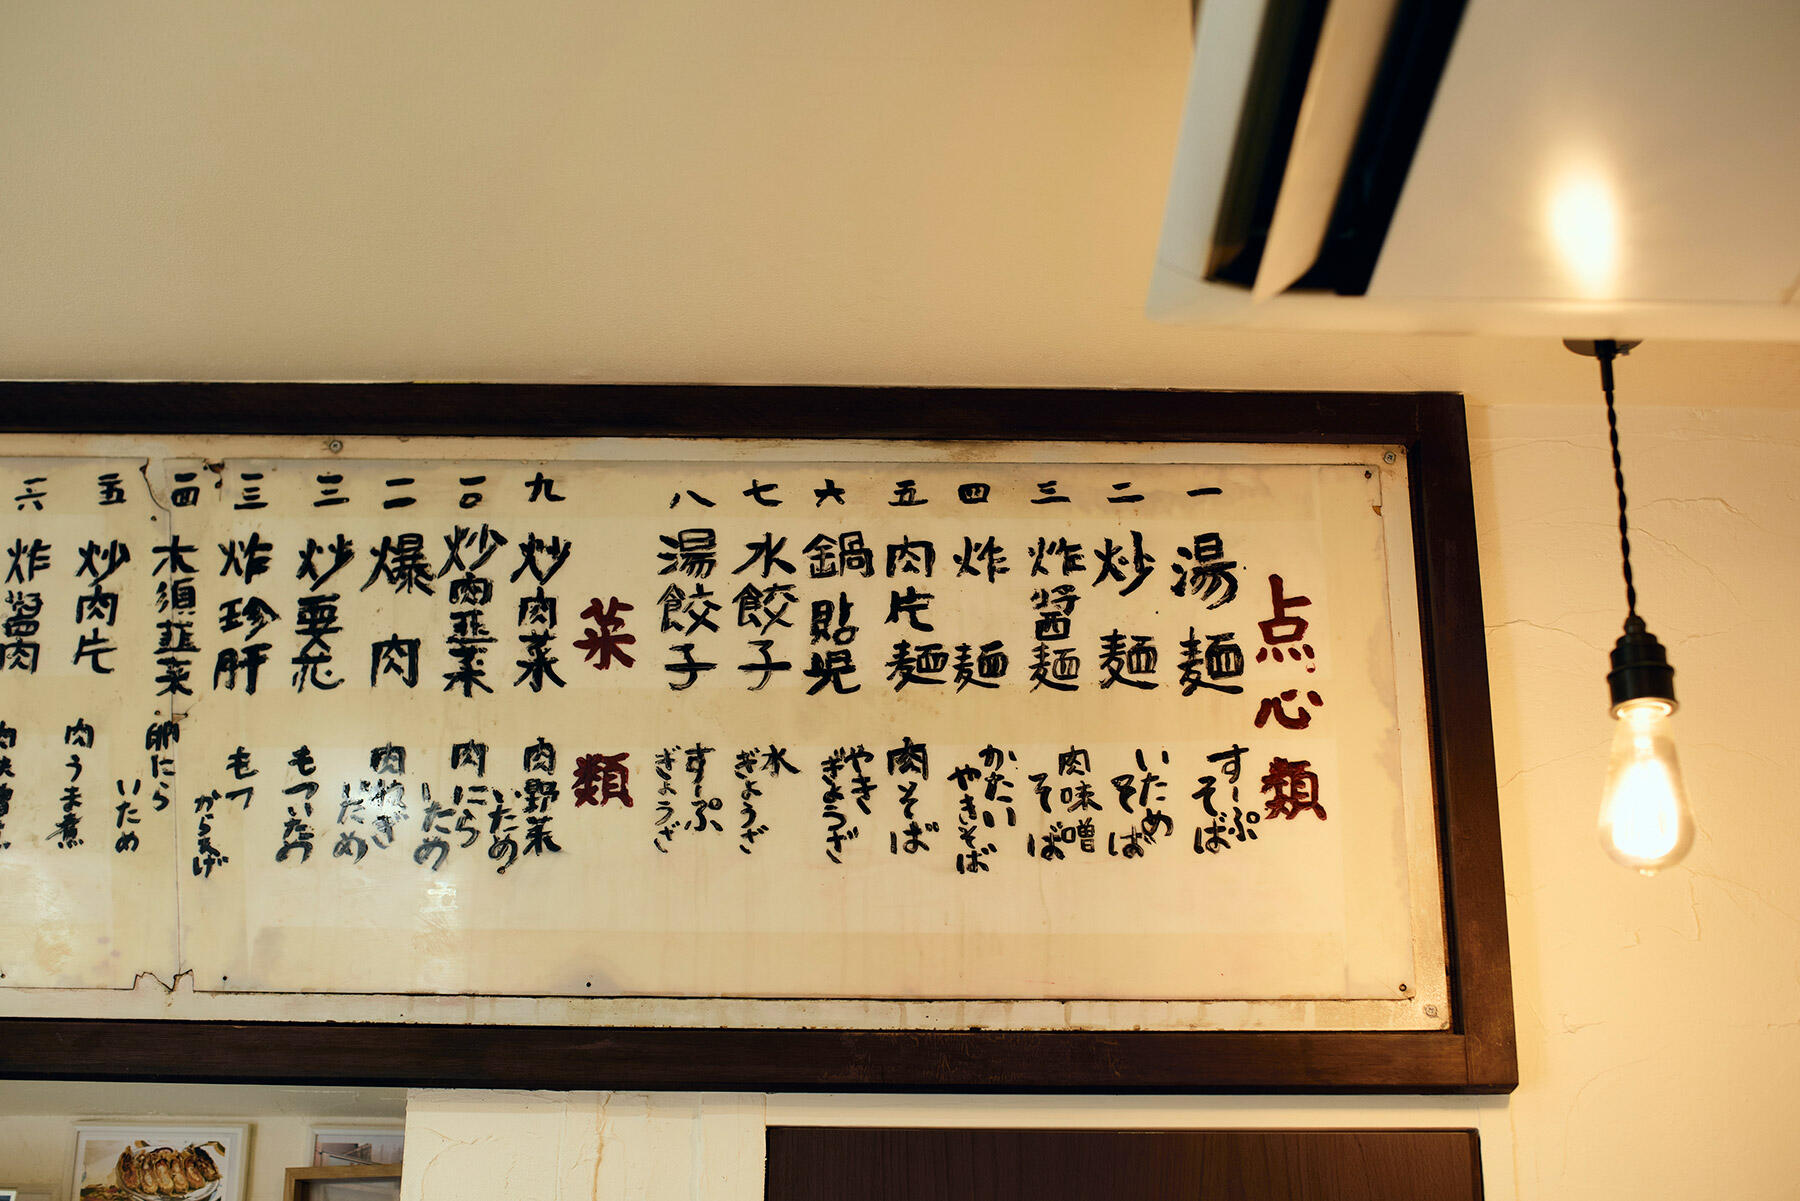 点心類
一 湯麺 すーぷそば
二 炒麺 いためそば
三 炸醤麺 肉味噌そば
四 炸麺 かたいやきそば
五 肉片麺 肉そば
六 鍋貼児 やきぎょうざ
七 水餃子 水ぎょうざ
八 湯餃子 すーぷぎょうざ
菜類
九 炒肉菜 肉野菜いため
一〇 炒肉韮菜 肉にらいため
一一 爆肉 肉ねぎいため
一二 炒要花 もついため
一三 炸珍肝 もつからあげ
一四 木須韮菜 卵にらいため
一五 炒肉片 肉うま煮
一六 炸醤肉